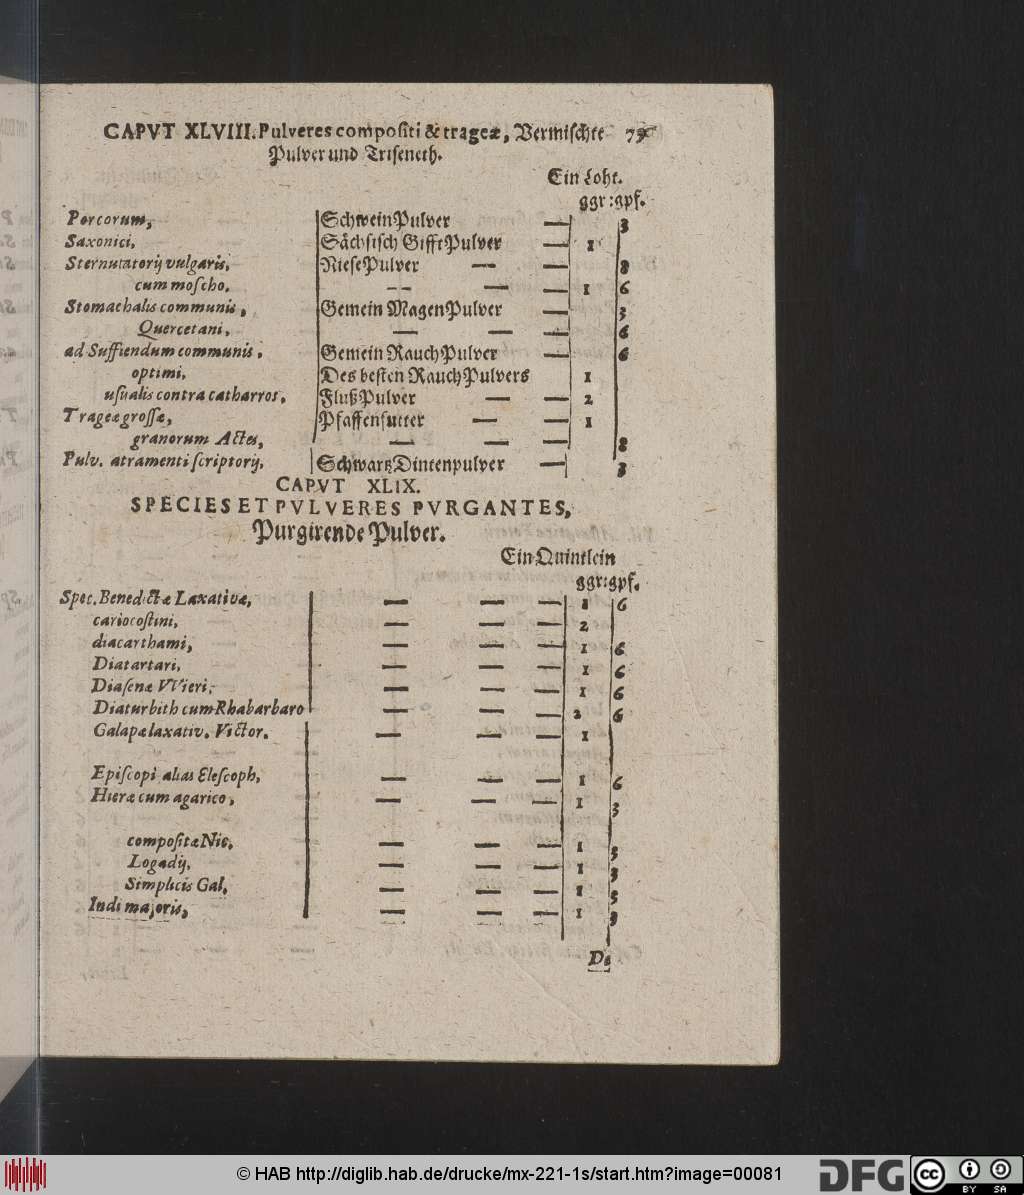 CAPVT XLVIII. Pulveres compositi & trageæ, Vermischte 79
Pulver und Triseneth.
Ein Loht.
ggr: gpf.
Porcorum, Schwein Pulver — 3
Saxonici, Sächsisch Gifft Pulver — 1
Sternutatorij vulgaris, Niese Pulver — — 8
cum moscho, — — — 1 6
Stomachalis communis, Gemein Magen Pulver — 3
Quercetani, — — — 6
ad Suffiendum communis, Gemein Rauch Pulver — 6
optimi, Des besten Rauch Pulvers 1
usualis contra catharros, Fluß Pulver — — 2
Trageæ grossæ, Pfaffenfutter — — 1
granorum Actes, — — — 8
Pulv. atramenti scriptorij, Schwartz Dintenpulver — 3
CAPVT XLIX.
SPECIES ET PVLVERES PVRGANTES,
Purgirende Pulver.
Ein Quintlein
ggr: gpf.
Spec. Benedictæ Laxativæ, — — — 1 6
cariocostini, — — — 2
diacarthami, — — — 1 6
Diatartari, — — — 1 6
Diasenæ VVieri, — — — 1 6
Diaturbith cum Rhabarbaro — — — 2 6
Galapæ laxativ. Victor. — — — 1
Episcopi alias Elescoph, — — — 1 6
Hieræ cum agarico, — — — 1 3
compositæ Nic, — — — 1 3
Logadij, — — — 1 3
Simplicis Gal, — — — 1 3
Indi majoris, — — — 1 3
De
© HAB http://diglib.hab.de/drucke/mx-221-1s/start.htm?image=00081
DFG
CC BY SA